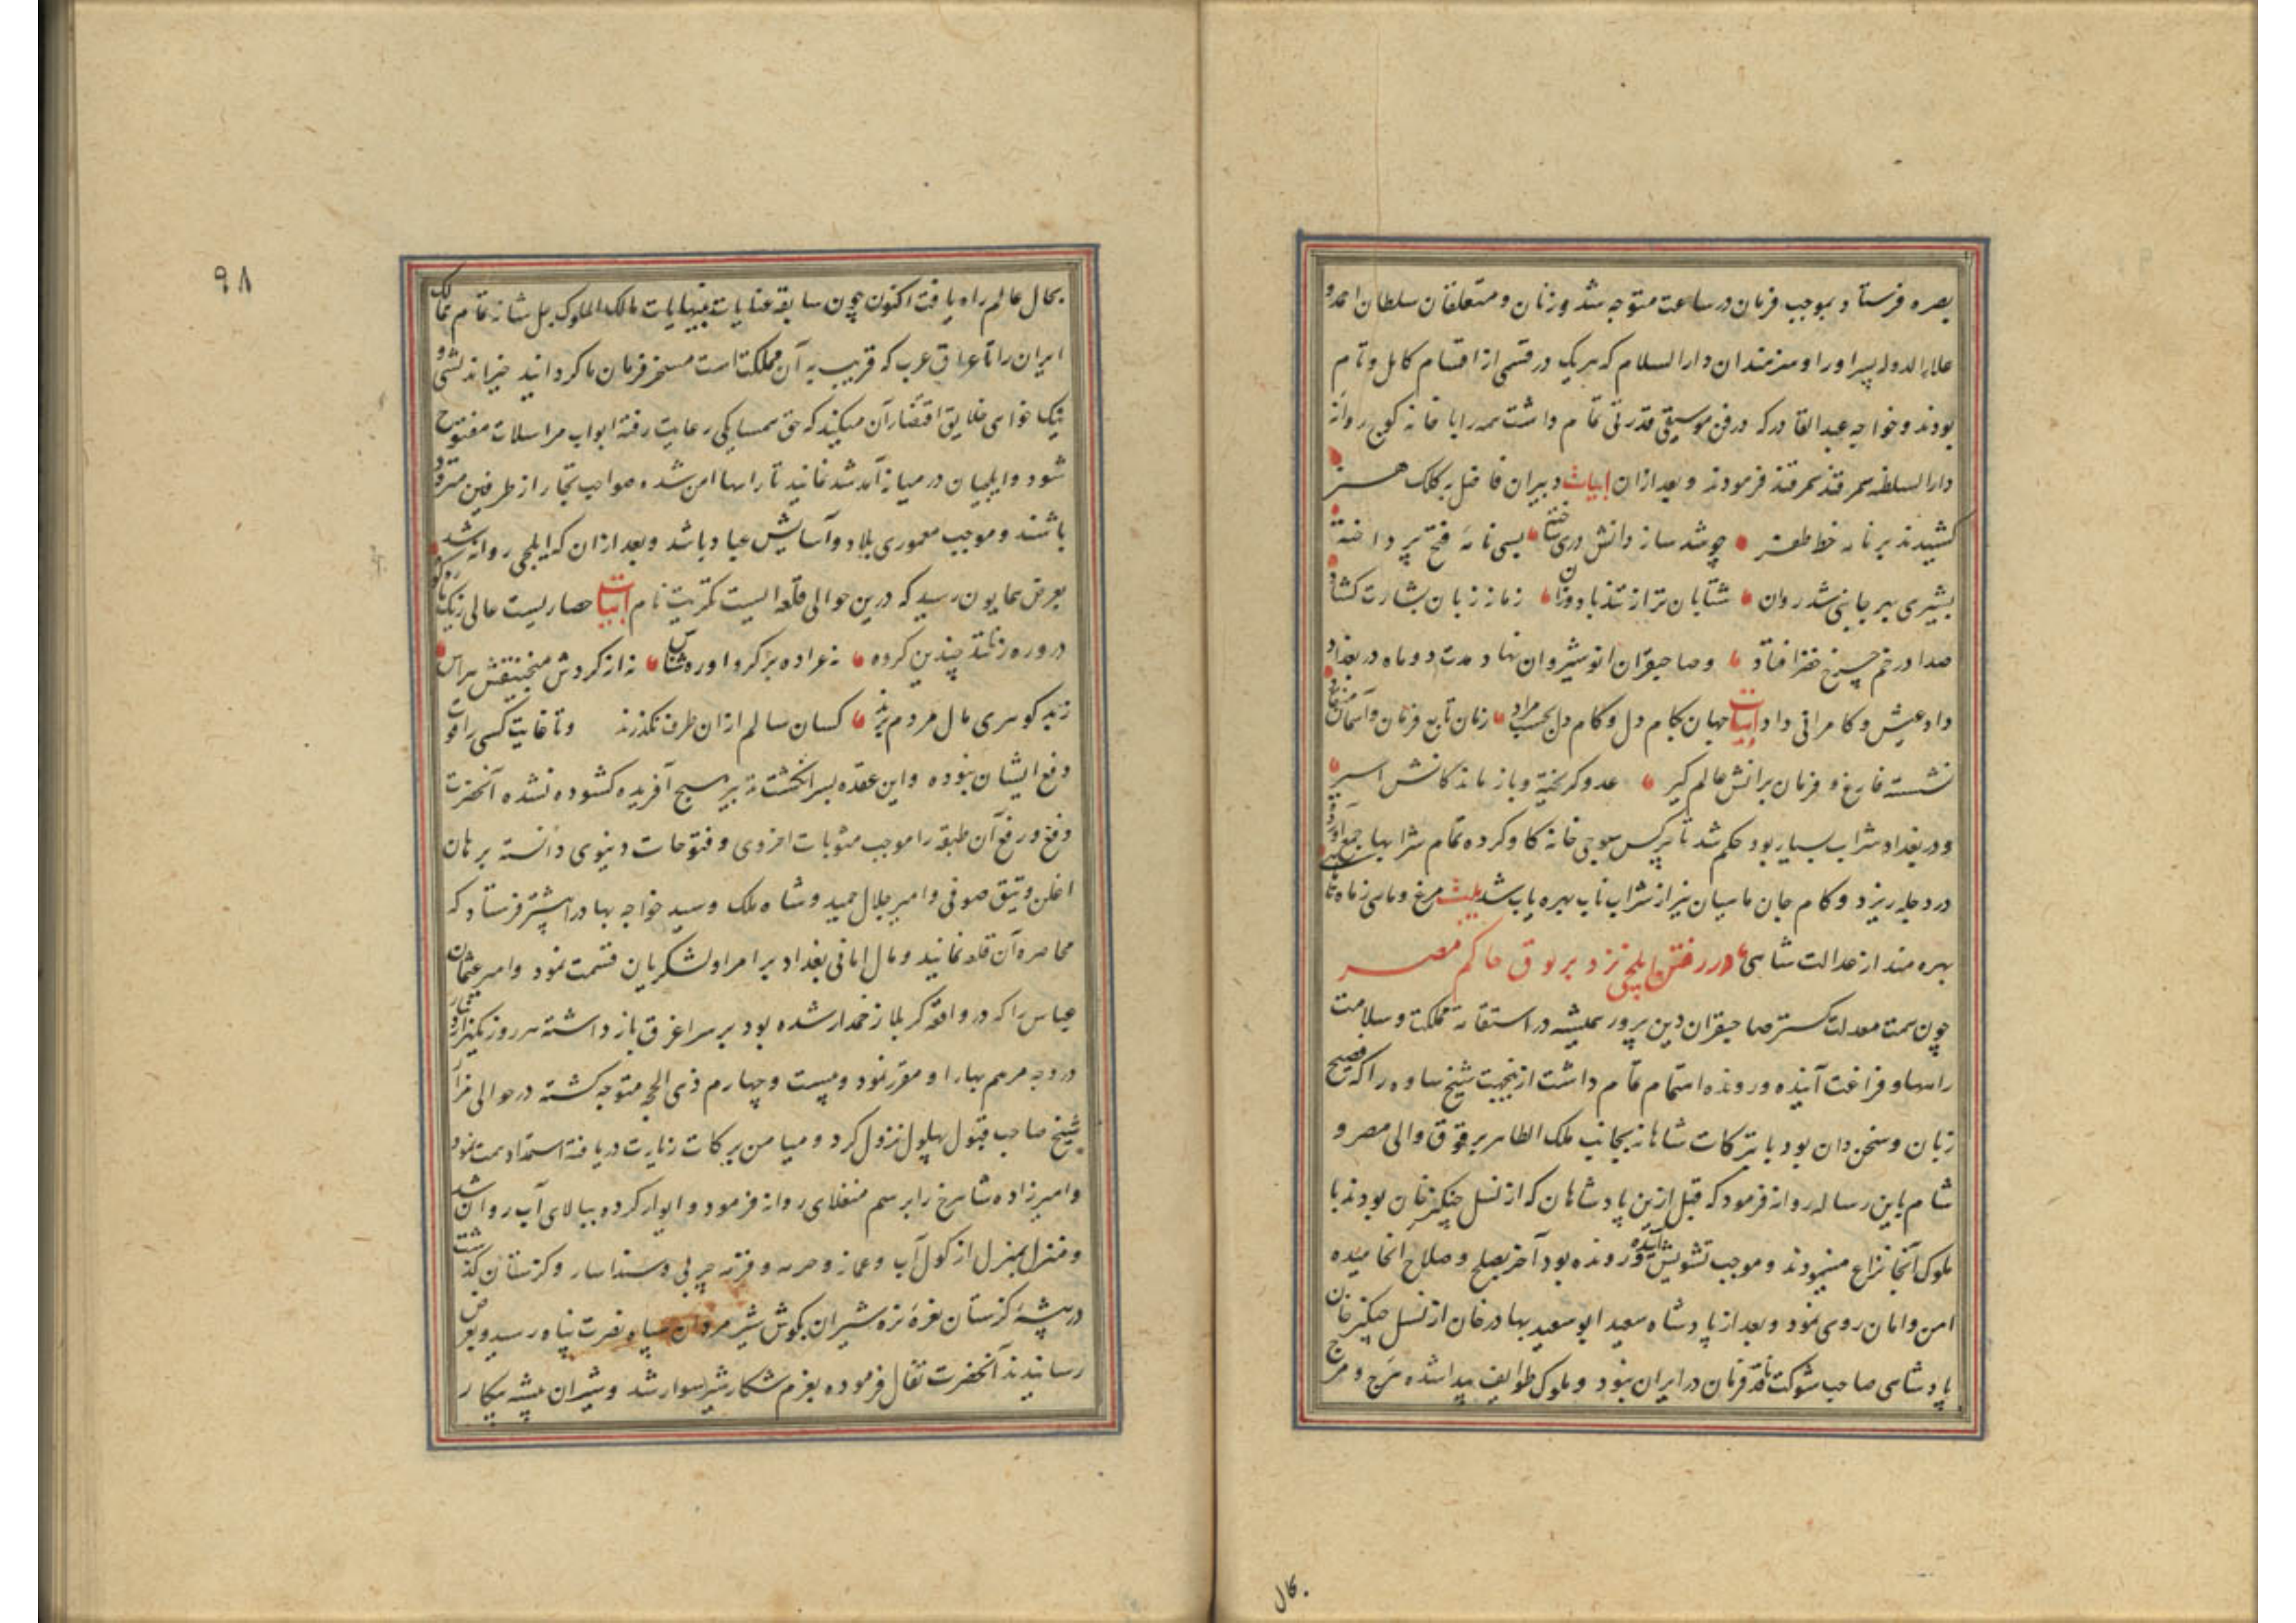 بصره فرستاد و بموجب فرمان در ساعت متوجه شد و زنان و متعلقان سلطان احمد و
علاء الدوله پسر او را و هنرمندان دار السلام که هر یک در قسمی از اقسام کامل و تام
بودند و خواجه عبد القادر که در فن موسیقی قدرتی تمام داشت همه را با خانه کوچ روانه
دار السلطنه سمرقند فرمودند و بعد از ان ابیات دبیران فاضل بکلک هنر
کشیدند بر نامه خط ظفر چو شد ساز دانش وری ساخته بسی نامه فتح پرداخته
بشیری بهر جانبی شد روان شتابان تر از تندباد وزان زمانه زبان بشارت کشاد
صدا در خم چرخ خضرا فتاد و صاحبقران انوشیروان نهاد مدت دو ماه در بغداد
داد عیش و کامرانی داد ابیات جهان بکام دل و کام دل بحسب مراد زمان تابع فرمان و آسمان
نشسته فارغ و فرمان برانش عالم گیر عدو گریخته و باز ماندگانش اسیر
و در بغداد شراب بسیار بود حکم شد تا برکس بوجی خانه کاو کرده تمام شرابها جمع آورده
در دجله ریزد و کام جان ماهیان نیز از شراب ناب بهره یاب شد بیت مرغ و ماهی ز ماه تا
بهره مند از عدالت شاهی در رفتن ایلچی نزد برقوق حاکم مصر
چون همت معدلت گستر صاحبقران دین پرور همیشه در استقامت مملکت و سلامت
راهها و فراغت آینده و رونده اهتمام تمام داشت ازینجهت شیخ ساوه را که فصیح
زبان و سخن دان بود با تبرکات شاهانه بجانب ملک الظاهر برقوق والی مصر و
شام باین رساله روانه فرمود که قبل ازین پادشاهان که از نسل چنکیز خان بودند با
ملوک آنجا نزاع مینمودند و موجب تشویش آینده و رونده بود آخر بصلح و صلاح انجامیده
امن و امان روی نمود و بعد از پادشاه سعید ابو سعید بهادر خان از نسل چنکیز خان
پادشاهی صاحب شوکت نافذ فرمان در ایران نبود و ملوک طوایف پیدا شده هرج و مرج
بحال
۹۸
بحال عالم راه یافت اکنون چون سابقه عنایات بینهایات مالک الملوک جل شانه تمام ممالک
ایران را تا عراق عرب که قریب به آن مملکت است مسخر فرمان ما کردانید خیر اندیشی و
نیک خواهی خلایق اقتضاء آن میکند که حق همسایکی رعایت رفته ابواب مراسلات مفتوح
شود و ایلچیان در میانه آمد شد نمایند تا راهها امن شده صواحب تجار از طرفین متردد
باشند و موجب معموری بلاد و آسایش عباد باشد و بعد از ان که ایلچی روانه شد
بعرض همایون رسید که درین حوالی قلعه ایست تکریت نام ابیات حصاریست عالی ز یک
درو رهزنند چندین کروه نه عراده بر کرد او ره شناس نه از کردش منجنیقش هراس
زند کوهری مال مردم برند کسان سالم از ان طرف نکذرند و تا غایت کسی را قوت
دفع ایشان نبوده و این عقده بسر انکشت تدبیر هیچ آفریده کشوده نشده آنحضرت
دفع و رفع آن طبقه را موجب مثوبات اخروی و فتوحات دنیوی دانسته برهان
اغلن و یتیق صوفی و امیر جلال حمید و شاه ملک و سید خواجه بهادر را پیشتر فرستاد که
محاصره آن قلعه نمایند و مال امانی بغداد بر امرا و لشکریان قسمت نمود و امیر عثمان
عباس را که در واقعه کربلا زخمدار شده بود بر سر اغرق باز داشته هر روز یکهزار دینار
در وجه مرهم بهار او مقرر نمود و بیست و چهارم ذی الحجه متوجه کشته در حوالی مزار
شیخ صاحب قبول بهلول نزول کرد و میامن برکات زیارت دریافته استمداد همت نمود
و امیرزاده شاهرخ را برسم منغلای روانه فرمود و ایوار کرده ببالای آب روان شد
و منزل بمنزل از کول آب و عمانه و حرمه و قرنه چربی و سنداسار و کزستان کذشت
در بیشه کزستان نعره نره شیران بکوش شیر مردان سپاه نصرت پناه رسید و بعرض
رسانیدند آنحضرت تفال فرموده بعزم شکار شیر سوار شد و شیران بیشه پیکار